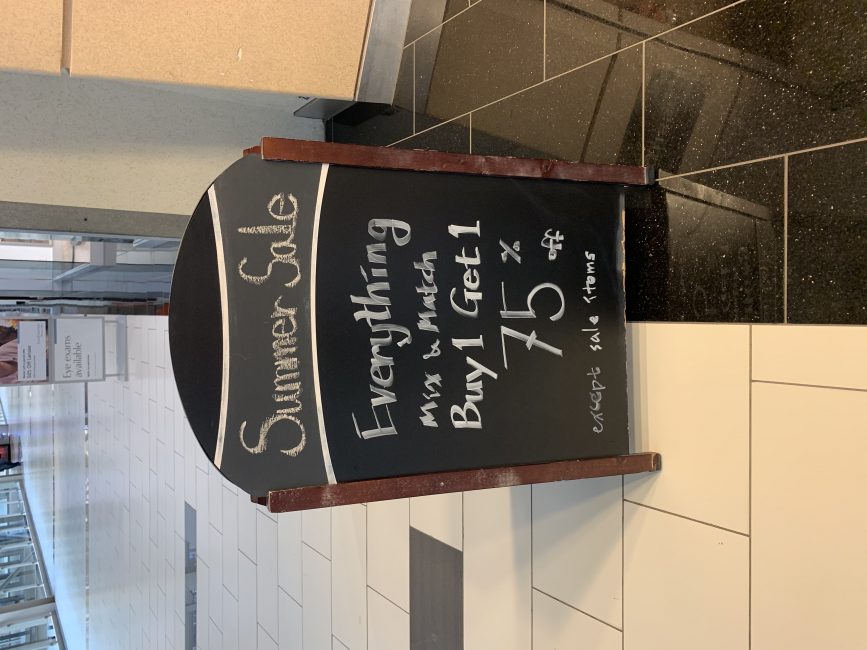 Summer Sale
Everything
Mix & Match
Buy 1 Get 1
75 %
off
except sale items
Eye exams
available